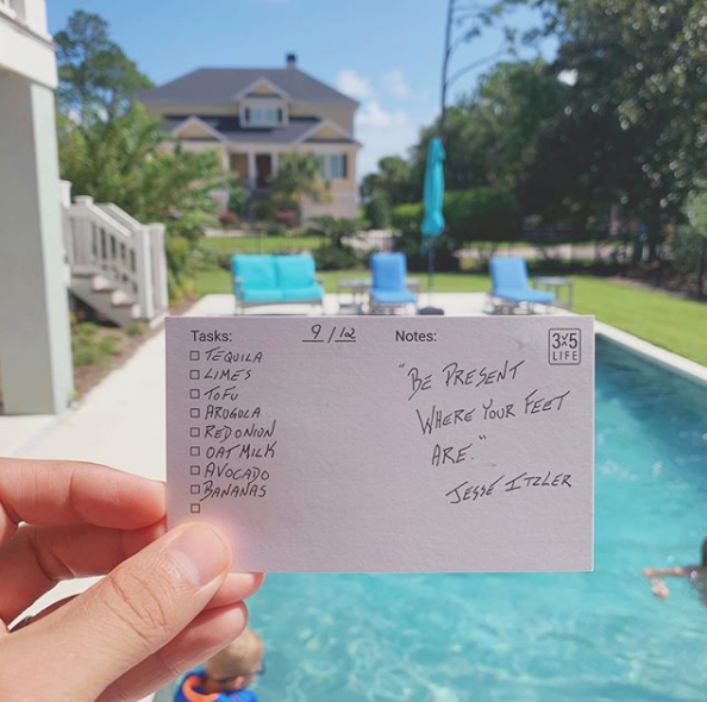 Tasks: 9/12
TEQUILA
LIMES
TOFU
ARUGULA
RED ONION
OAT MILK
AVOCADO
BANANAS
Notes:
"BE PRESENT
WHERE YOUR FEET
ARE."
JESSE ITZLER
3x5
LIFE